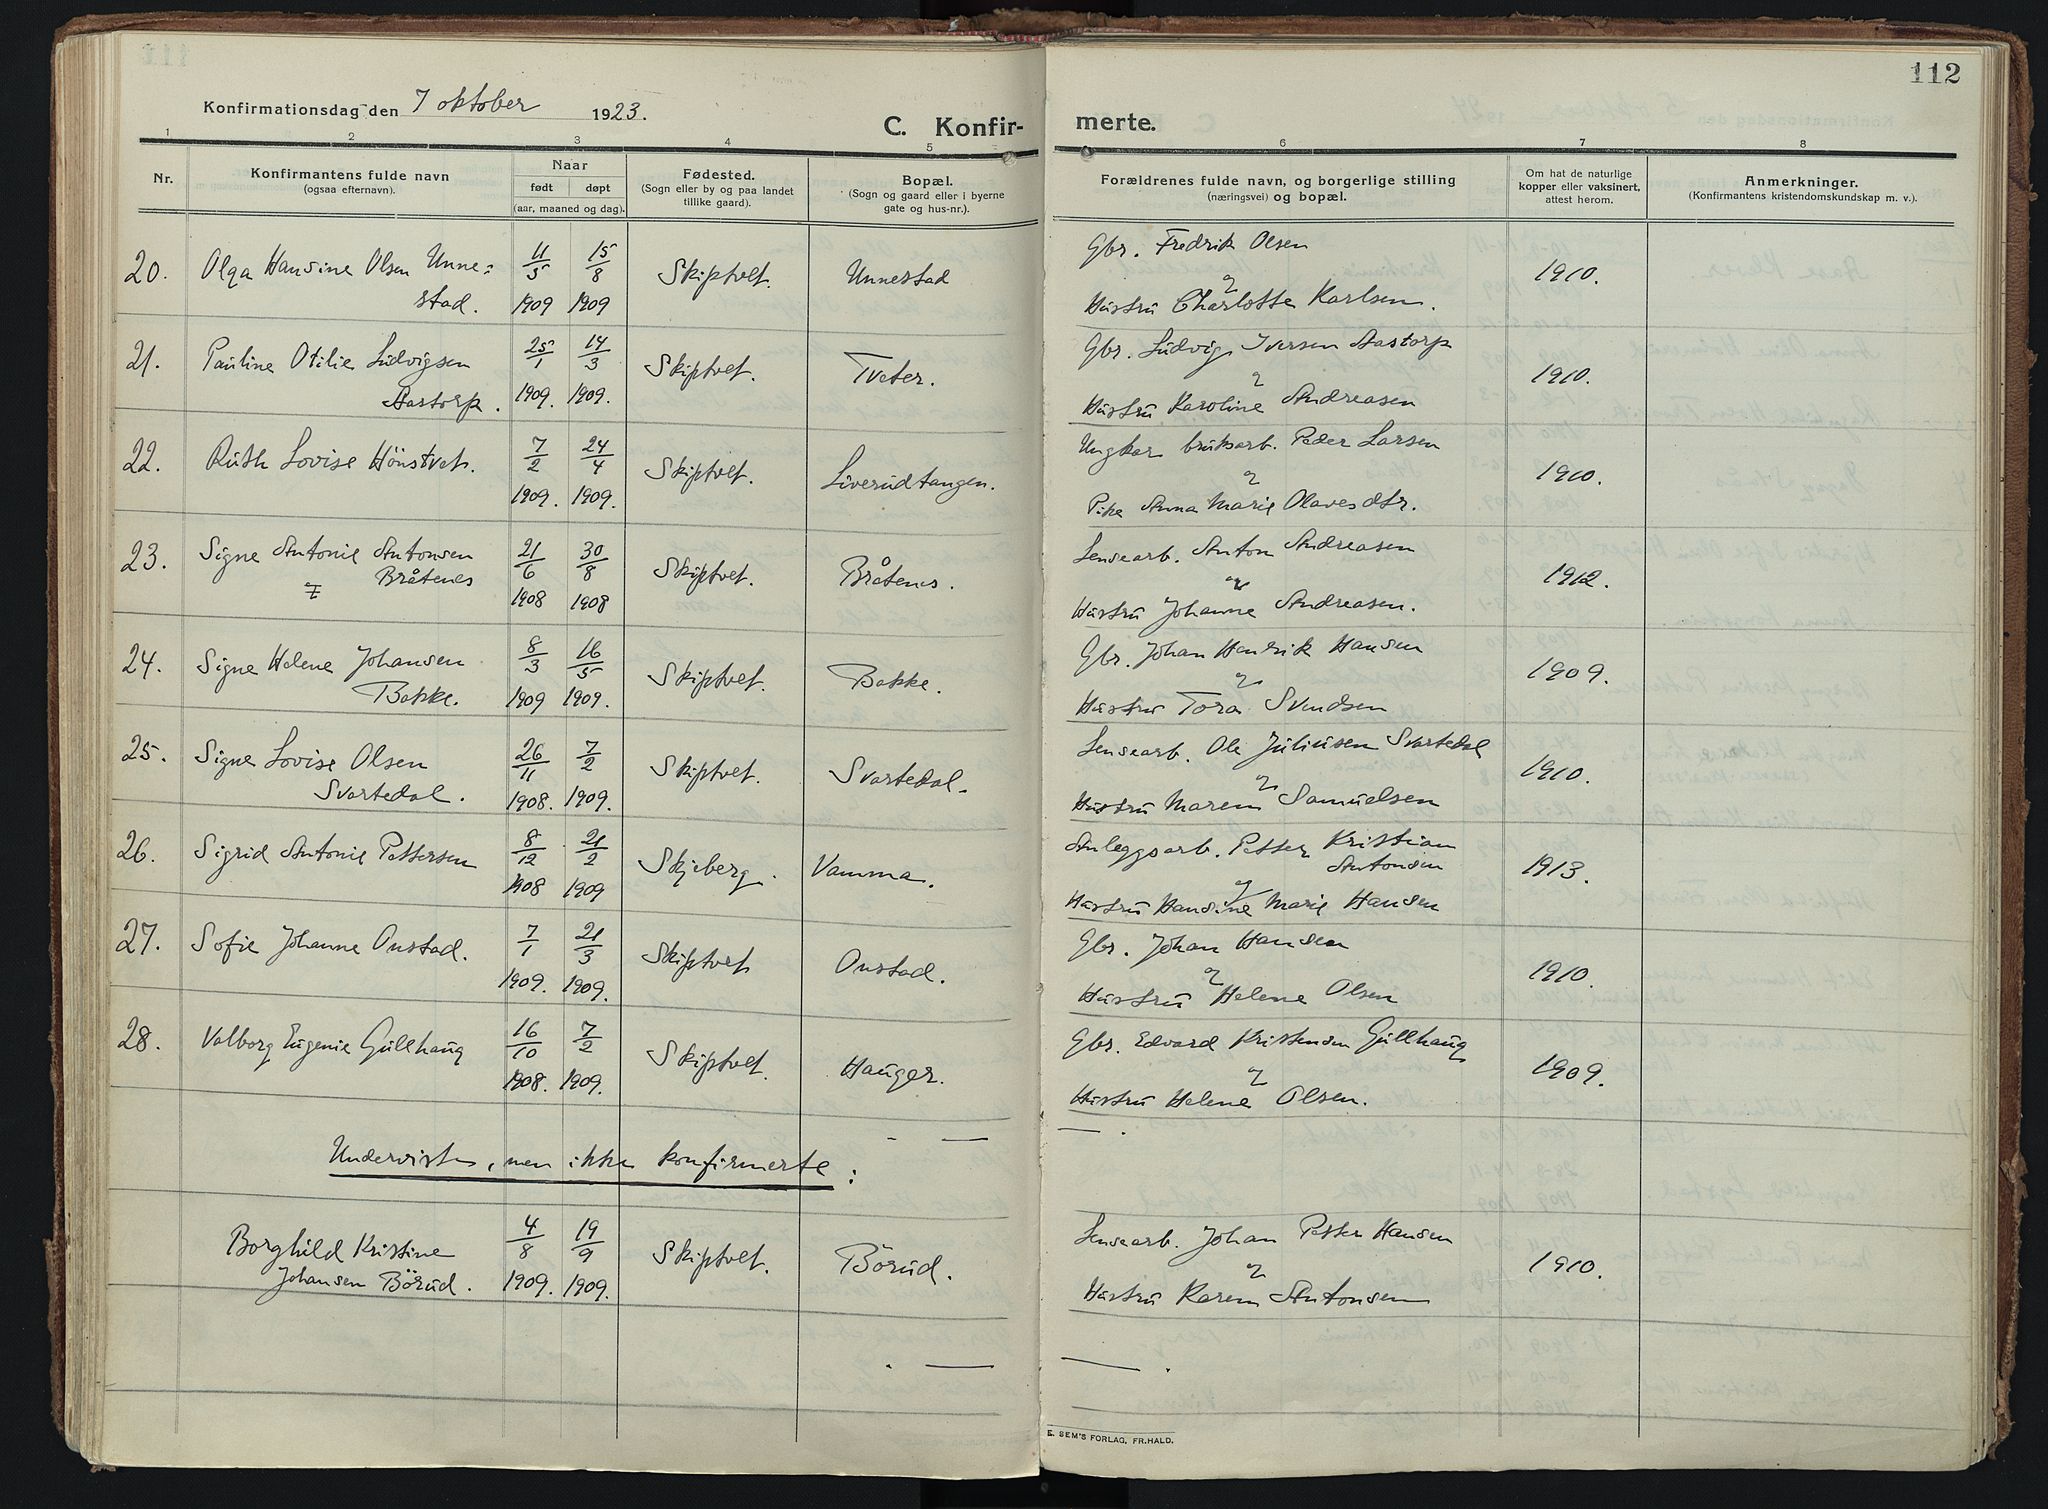 112
Konfirmationsdag den 7 oktober 1923.
C. Konfir- merte.
1 2 3 4 5 6 7 8
Nr.
Konfirmantens fulde navn
(ogsaa efternavn).
Naar
født døpt
(aar, maaned og dag).
Fødested.
(Sogn eller by og paa landet
tillike gaard).
Bopæl.
(Sogn og gaard eller i byerne
gate og hus-nr.).
Forældrenes fulde navn, og borgerlige stilling
(næringsvei) og bopæl.
Om hat de naturlige
kopper eller vaksinert,
attest herom.
Anmerkninger.
(Konfirmantens kristendomskundskap m. v.).
20. Olga Hansine Olsen Unne= 11/5 15/8 Skiptvet. Unnestad Gbr. Fredrik Olsen 1910.
stad. 1909 1909 & Hustru Charlotte Karlsen.
21. Pauline Otilie Ludvigsen 25/1 14/3 Skiptvet. Tveter. Gbr. Ludvig Iversen Aastorp 1910.
Aastorp. 1909. 1909. & Hustru Karoline Andreasen
22. Ruth Lovise Hönstvet. 7/2 24/4 Skiptvet. Liverudtangen. Ungkar bruksarb. Peder Larsen 1910.
1909. 1909. & Pike Anna Marie Olavesdtr.
23. Signe Antonie Antonsen 21/6 30/8 Skiptvet. Bråtenes. Lensearb. Anton Andreasen 1912.
Bråtenes 1908 1908 & Hustru Johanne Andreasen.
24. Signe Helene Johansen 8/3 16/5 Skiptvet. Bakke. Gbr. Johan Henrik Hansen 1909.
Bakke. 1909 1909. & Hustru Tora Svendsen
25. Signe Lovise Olsen 26/11 7/2 Skiptvet. Svartedal. Lensearb. Ole Juliusen Svartedal 1910.
Svartedal. 1908. 1909. & Hustru Maren Samuelsen
26. Sigrid Antonie Pettersen 8/12 21/2 Skjeberg. Vamma. Anleggsarb. Petter Kristian 1913.
Antonsen
1908 1909 & Hustru Hansine Marie Hansen
27. Sofie Johanne Onstad. 7/1 21/3 Skiptvet Onstad. Gbr. Johan Hansen 1910.
1909. 1909. & Hustru Helene Olsen
28. Valborg Eugenie Gullhaug 16/10 7/2 Skiptvet. Hauger. Gbr. Edvard Kristensen Gullhaug 1909.
1908. 1909. & Hustru Helene Olsen.
Underviste, men ikke konfirmerte:
Borghild Kristine 4/8 19/9 Skiptvet. Börud. Lensearb. Johan Petter Hansen 1910.
Johansen Börud. 1909. 1909. & Hustru Karen Antonsen
E. SEM'S FORLAG, FR.HALD.